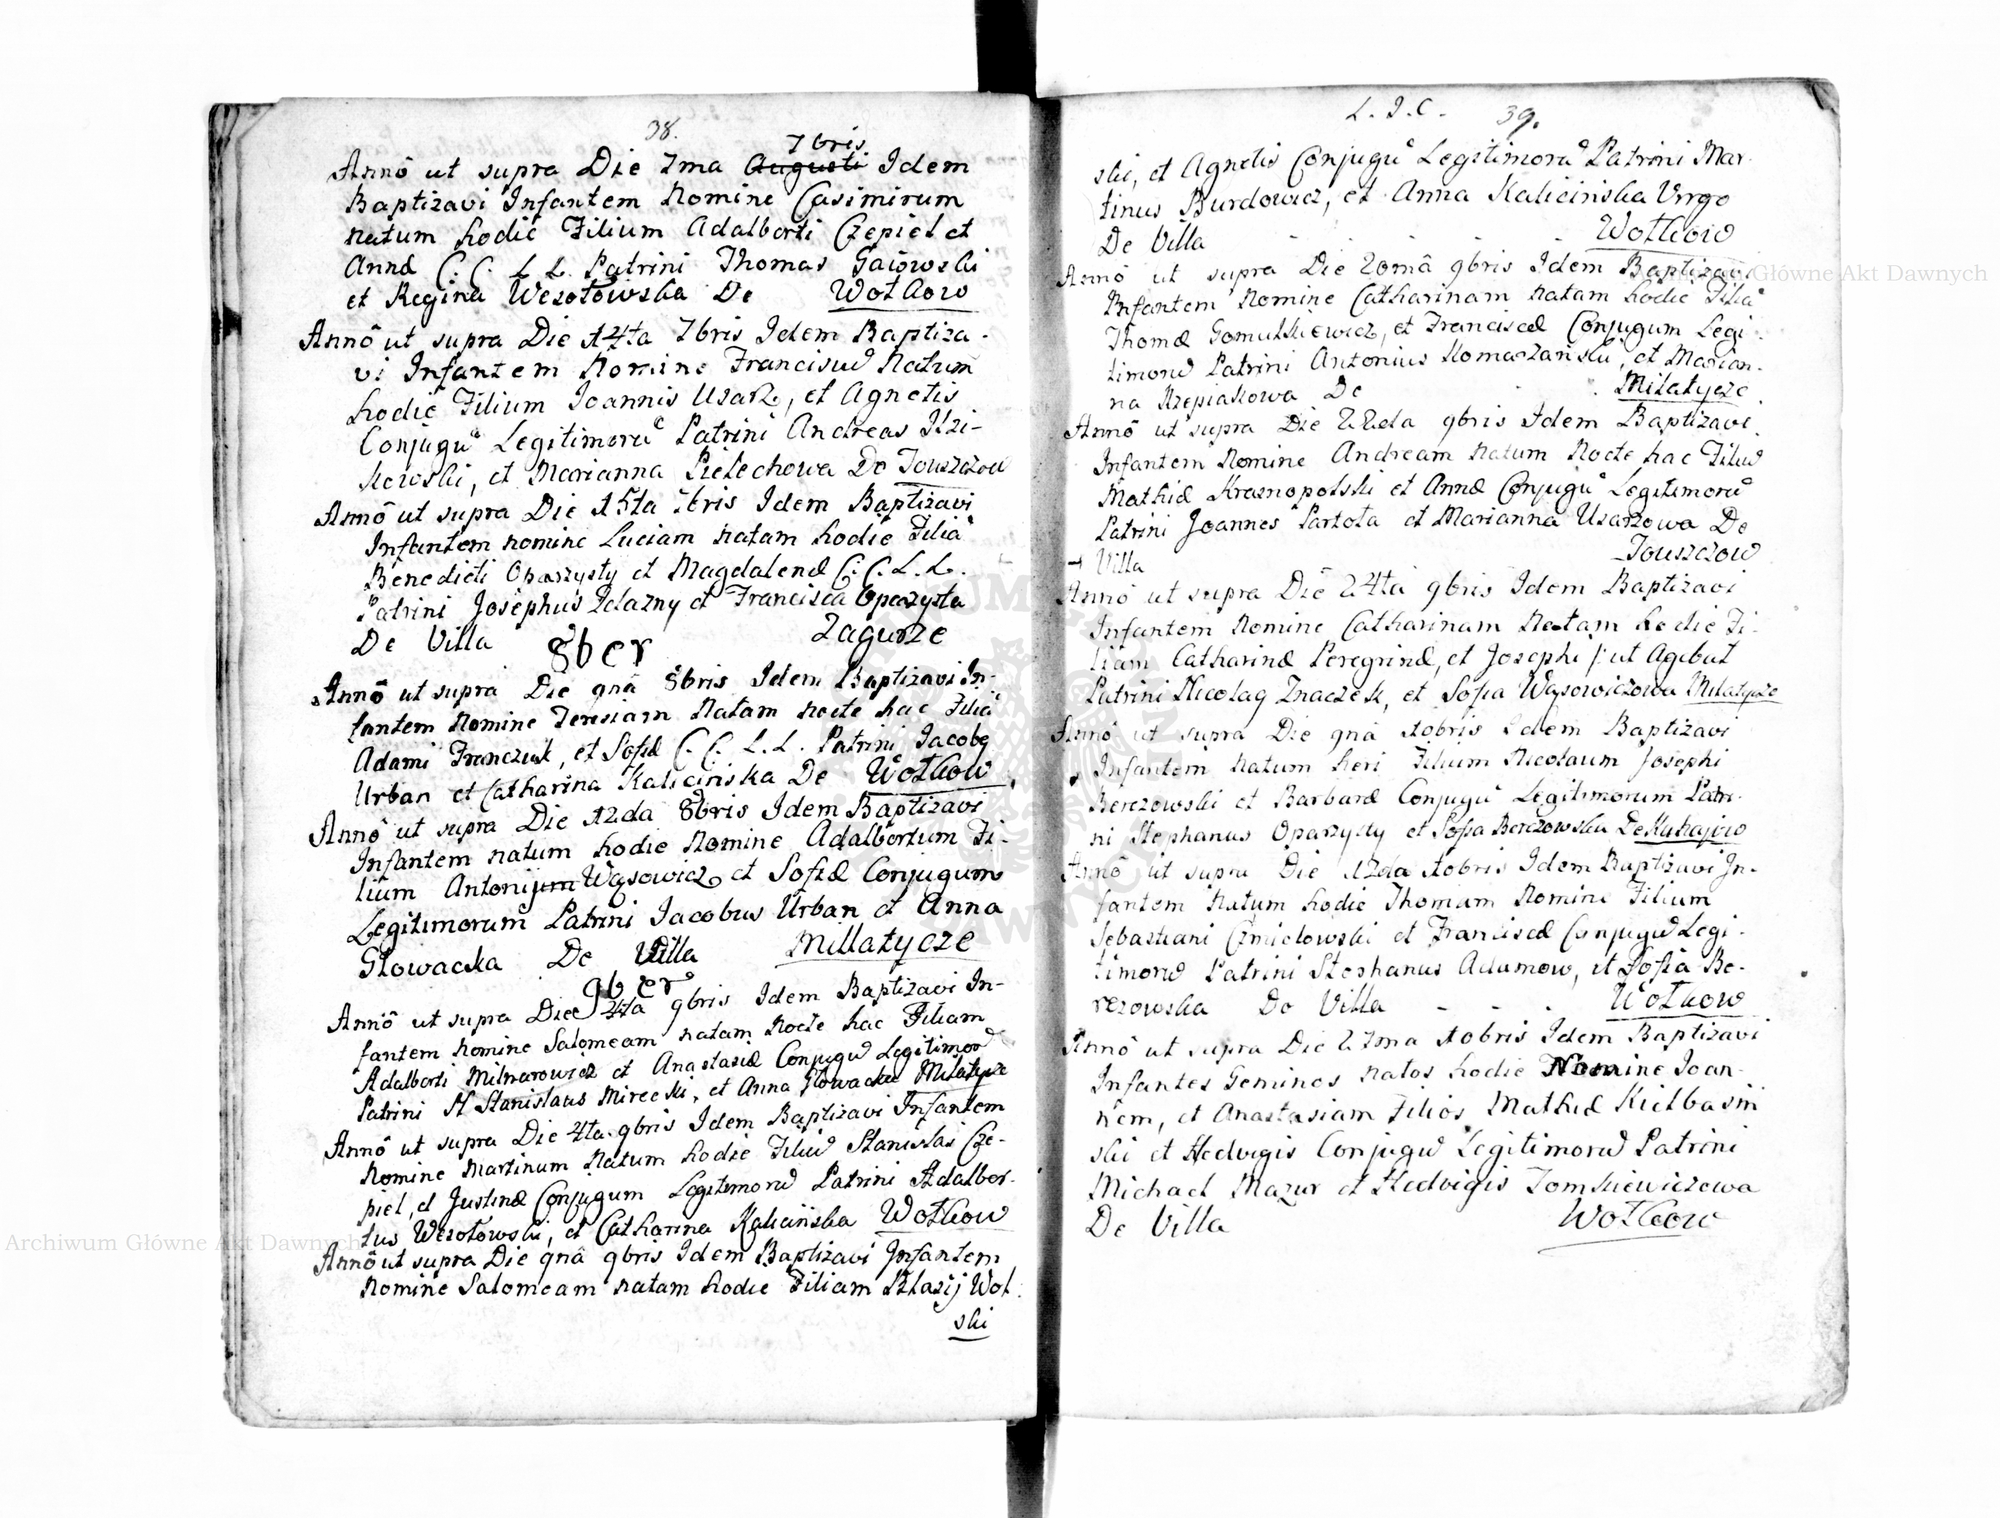 38.
7bris
Annô ut supra Die 7ma Augusti Idem
Baptizavi Infantem Nomine Casimirum
natum hodie Filium Adalberti Czepiel et
Annæ C. C. L L. Patrini Thomas Gaiowski
et Regina Wesołowska De Wołkow
Annô ut supra Die 14ta 7bris Idem Baptiza-
vi Infantem Nomine Francisuꝰ Natum
hodie Filium Joannis Usarz, et Agnetis
Conjugū Legitimorū Patrini Andreas
kowski, et Marianna Pielechowa De Touszczow
Annô ut supra Die 15ta 7bris Idem Baptizavi
Infantem nomine Luciam natam hodie Filiā
Benedicti Oparzysty et Magdalenæ C. C. L. L.
Patrini Josephus Zelazny et Francisca Oparzysta
De Villa Zagurze
8ber
Annô ut supra Die 9nâ 8bris Idem Baptizavi In-
fantem Nomine Teresiam Natam nocte hac Filiā
Adami Franczuk, et Sofiæ C. C. L. L. Patrini Jacobꝰ
Urban et Catharina Kalicińska De Wołkow
Annô ut supra Die 12da 8bris Idem Baptizavi
Infantem natum hodie Nomine Adalbertum Fi-
lium Antonijum Wąsowicz et Sofiæ Conjugum
Legitimorum Patrini Jacobus Urban et Anna
Głowacka De Villa Millatycze
9ber
Annô ut supra Die 4ta 9bris Idem Baptizavi In-
fantem Nomine Salomeam natam Nocte hac Filiam
Adalberti Milnarowicz et Anastasiæ Conjugū Legitimorū
Patrini Stanislaus Mirecki, et Anna Głowacka Milatycze
Annô ut supra Die 4ta 9bris Idem Baptizavi Infantem
Nomine Martinum Natum hodie Filiū Stanislai Cze-
piel, et Justinæ Conjugum Legitimorū Patrini Adalber-
tus Wesołowski, et Catharina Kalicińska Wołkow
Annô ut supra Die 9nâ 9bris Idem Baptizavi Infantem
Nomine Salomeam natam hodie Filiam Błasij Wol
ski
L. J. C. 39.
ski, et Agnetis Conjugū Legitimorū Patrini Mar-
tinus Burdowicz, et Anna Kalicińska Virgo
De Villa Wołkow
Annô ut supra Die 20mâ 9bris Idem Baptizavi
Infantem Nomine Catharinam natam hodie Filiā
Thomæ Gomułkiewicz, et Franciscæ Conjugum Legi-
timorū Patrini Antonius Komarzański, et Marian-
na Rzepiakowa De Milatycze
Annô ut supra Die 22da 9bris Idem Baptizavi
Infantem Nomine Andream natum Nocte hac Filiū
Mathiæ Krasnopolski et Annæ Conjugū Legitimorū
Patrini Joannes Partota et Marianna Usarzowa De
Villa Touszczow
Annô ut supra Die 24ta 9bris Idem Baptizavi
Infantem Nomine Catharinam Natam hodie Fi-
liam Catharinæ Peregrinæ, et Josephi /: ut Agebat
Patrini Nicolaꝰ Znaczek, et Sofia Wąsowiczowa Milatycze
Annô ut supra Die 9nâ Xobris Idem Baptizavi
Infantem natum heri Filium Nicolaum Josephi
Berezowski et Barbaræ Conjugū Legitimorum Patri-
ni Stephanus Oparzysty et Sofia Berezowska De Kuhajow
Annô ut supra Die 12da Xobris Idem Baptizavi In-
fantem Natum hodie Thomam Nomine Filium
Sebastiani Czmiełowski et Franciscæ Conjugū Legi-
timorū Patrini Stephanus Adamow, et Sofia Be-
rezowska De Villa Wołkow
Annô ut supra Die 27ma Xobris Idem Baptizavi
Infantes Geminos natos hodie Nomine Joan-
nem, et Anastasiam Filios Mathiæ Kiełbasiń
ski et Hedvigis Conjugū Legitimorū Patrini
Michael Mazur et Hedvigis Tomkiewiczowa
De Villa Wołkow
Archiwum Główne Akt Dawnych
Archiwum Główne Akt Dawnych